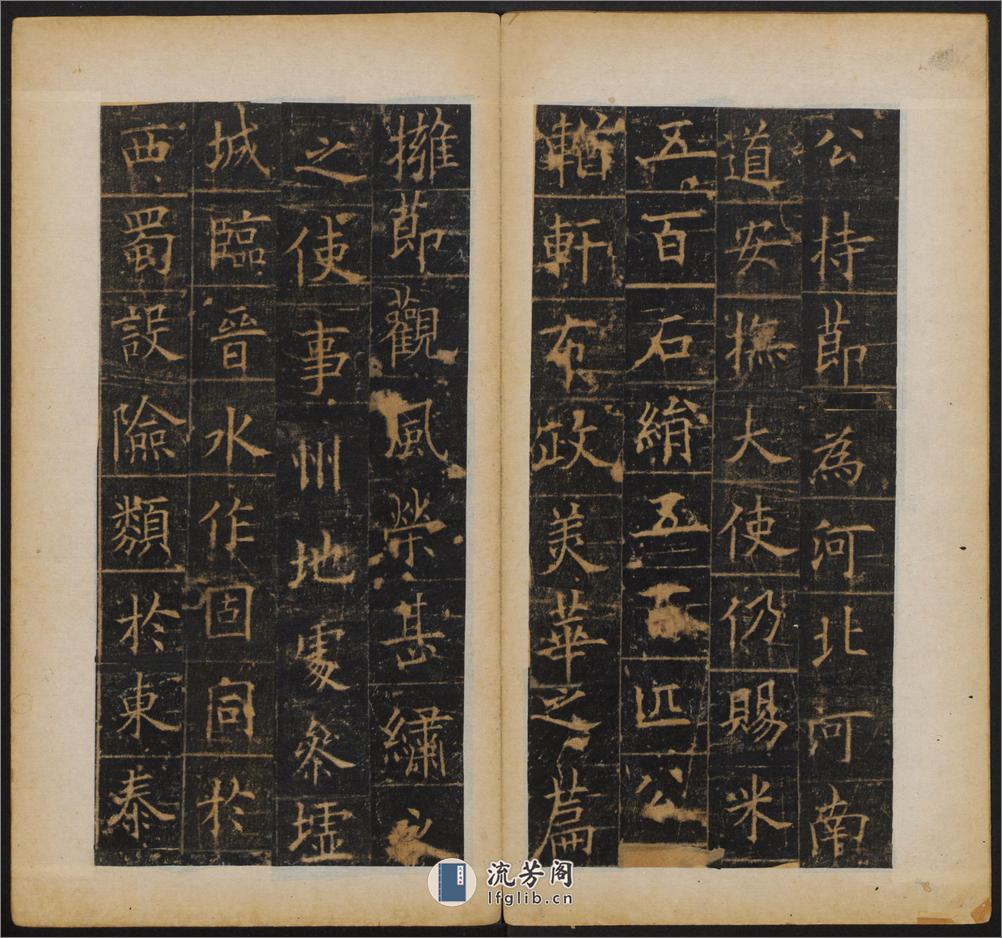 公持節為河北河南
道安撫大使仍賜米
五百石絹五百匹公
輶軒布政美華之篇
擁節觀風榮甚繡衣
之使事州地處參墟
城臨晉水作固同於
西蜀設險類於東秦
流芳阁
lfglib.cn